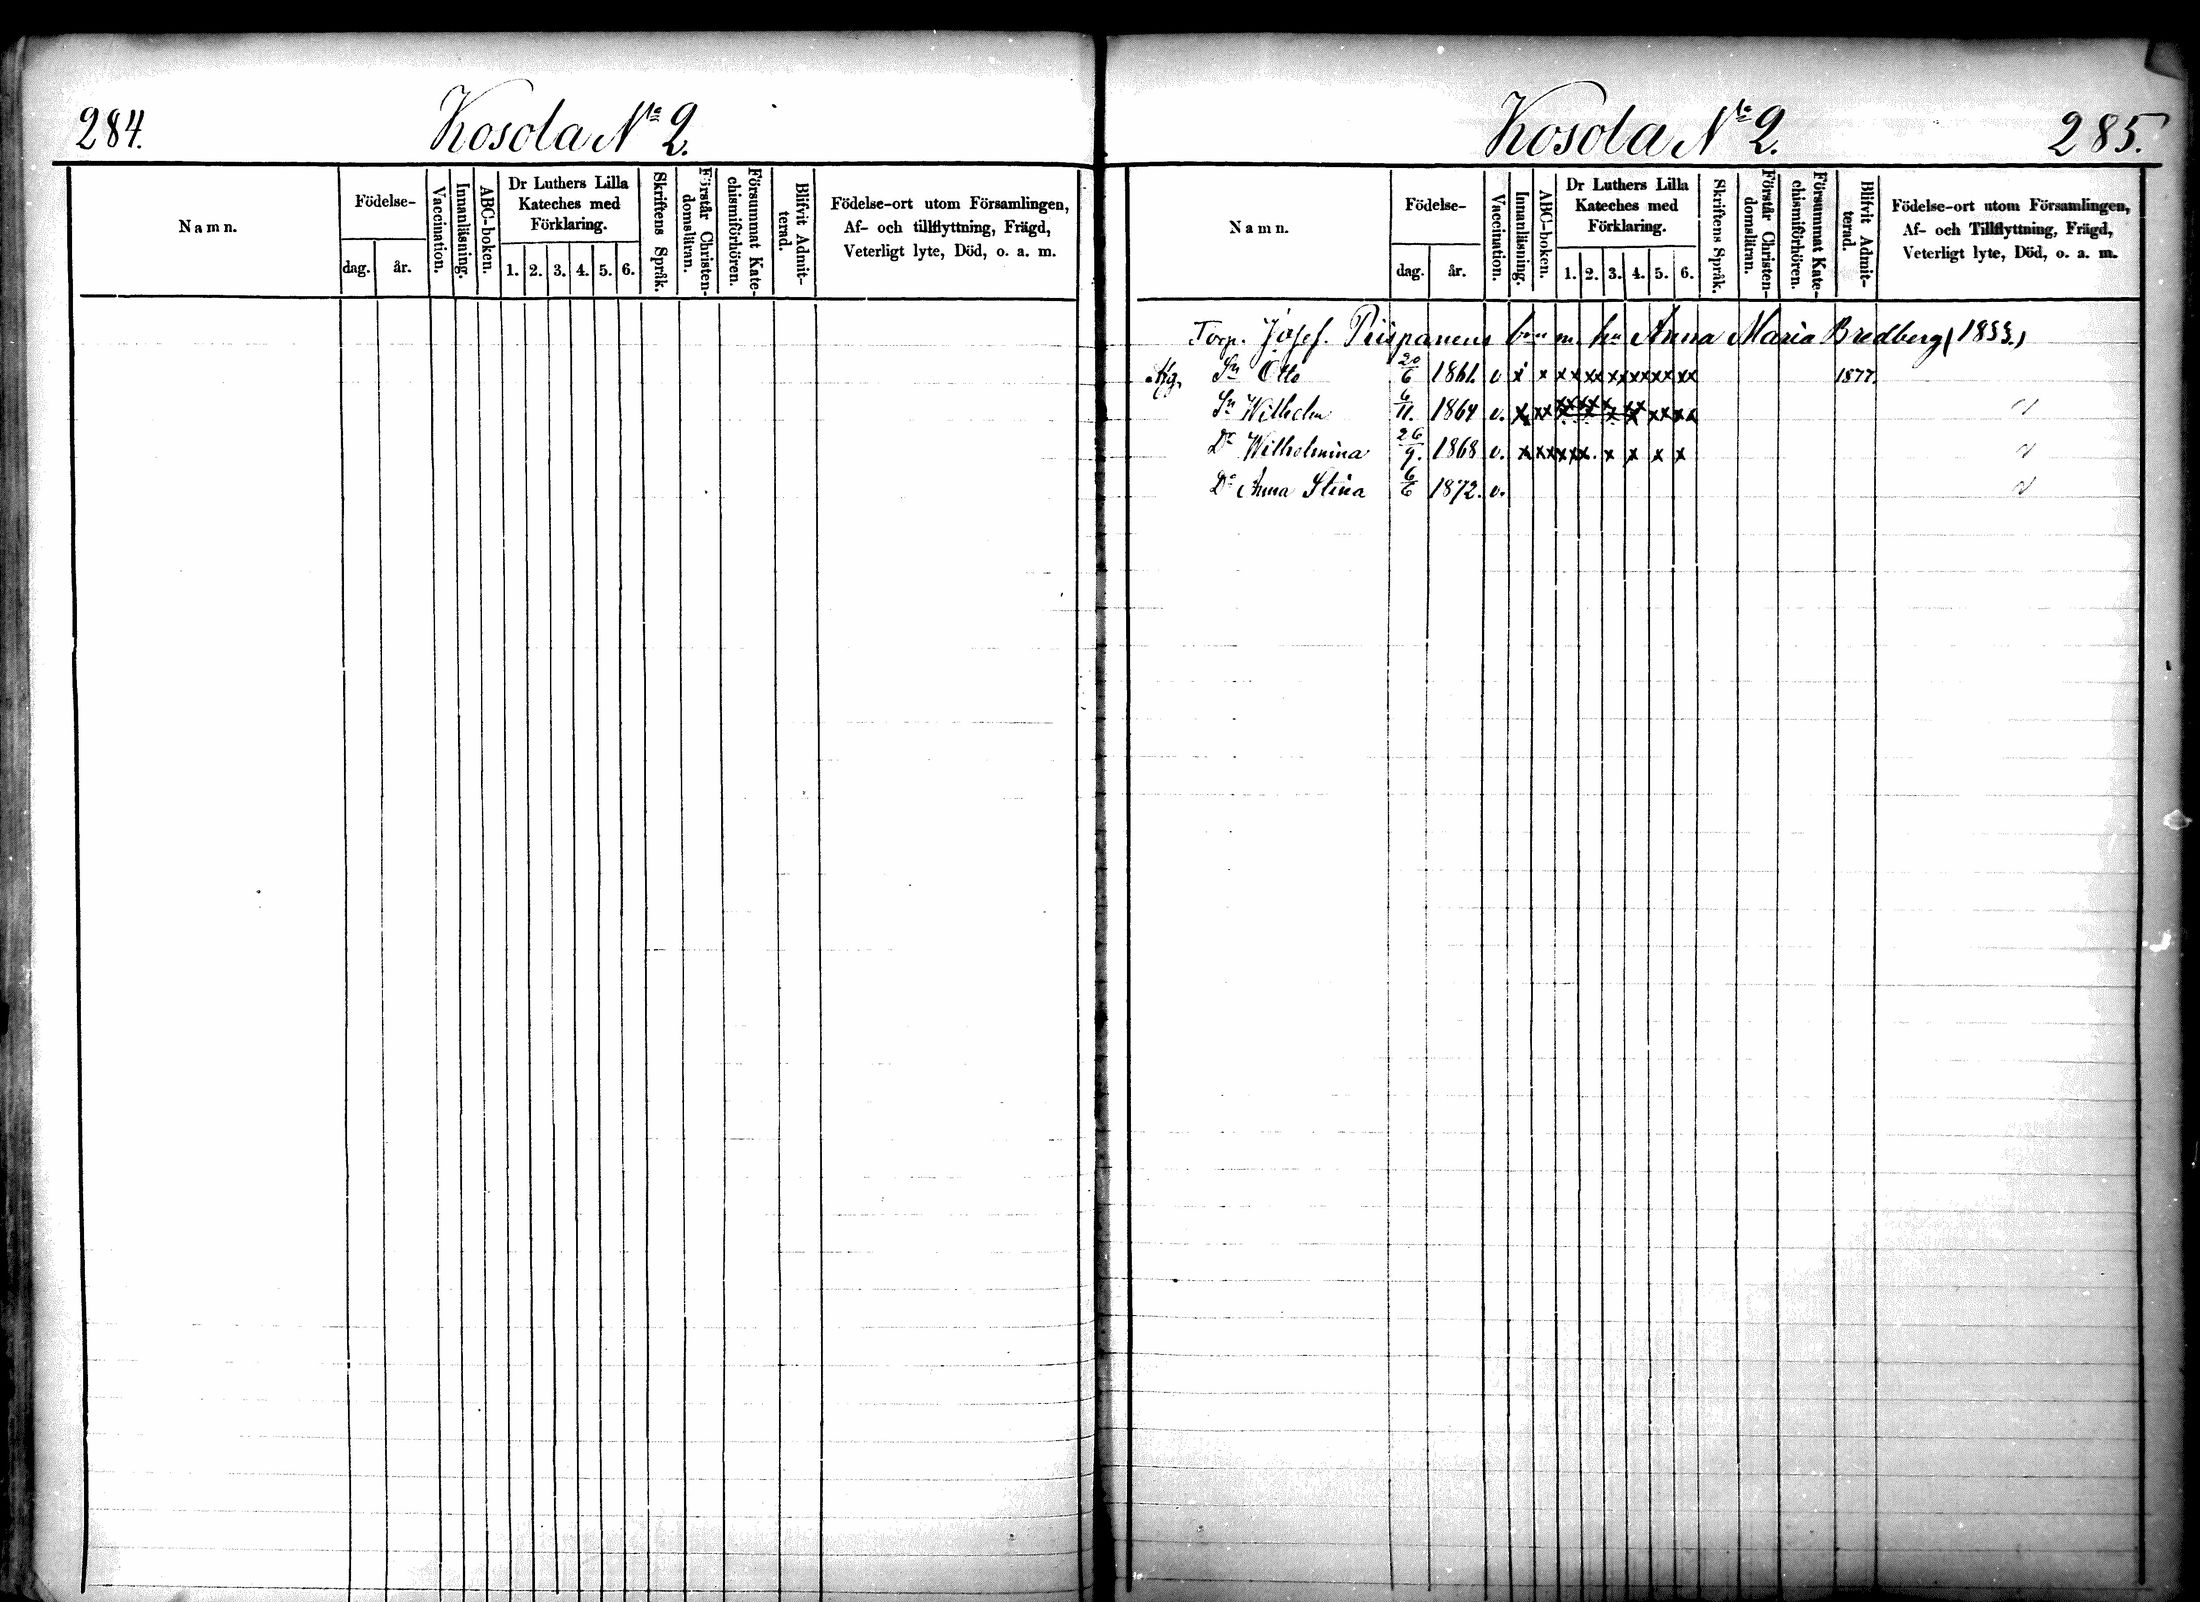 284.
Kosola No 2.
Namn.
Födelse-
dag.
år.
Vaccination.
Innanläsning.
ABC-boken.
Dr Luthers Lilla
Kateches med
Förklaring.
1. 2. 3. 4. 5. 6.
Skriftens Språk.
Förstår Christen-
domsläran.
Försummat Kate-
chismiförhören.
Blifvit Admit-
terad.
Födelse-ort utom Församlingen,
Af- och tillflyttning, Frägd,
Veterligt lyte, Död, o. a. m.
Kosola No 2.
285.
Namn.
Födelse-
dag.
år.
Vaccination.
Innanläsning.
ABC-boken.
Dr Luthers Lilla
Kateches med
Förklaring.
1. 2. 3. 4. 5. 6.
Skriftens Språk.
Förstår Christen-
domsläran.
Försummat Kate-
chismiförhören.
Blifvit Admit-
terad.
Födelse-ort utom Församlingen,
Af- och Tillflyttning, Frägd,
Veterligt lyte, Död, o. a. m.
Torp. Josef Piispanens bn m. hu Anna Maria Bredberg (1833.)
Kg. Sn Otto 20/6 1861. v x x x x x x x x x x x x x 1877.
Sn Wilhelm 6/11. 1864 v. x x x x x x x x x x x x x x x
Dr Wilhelmina 26/9. 1868 v. x x x x x x . x x x x
Dr Anna Stina 6/6 1872. v.